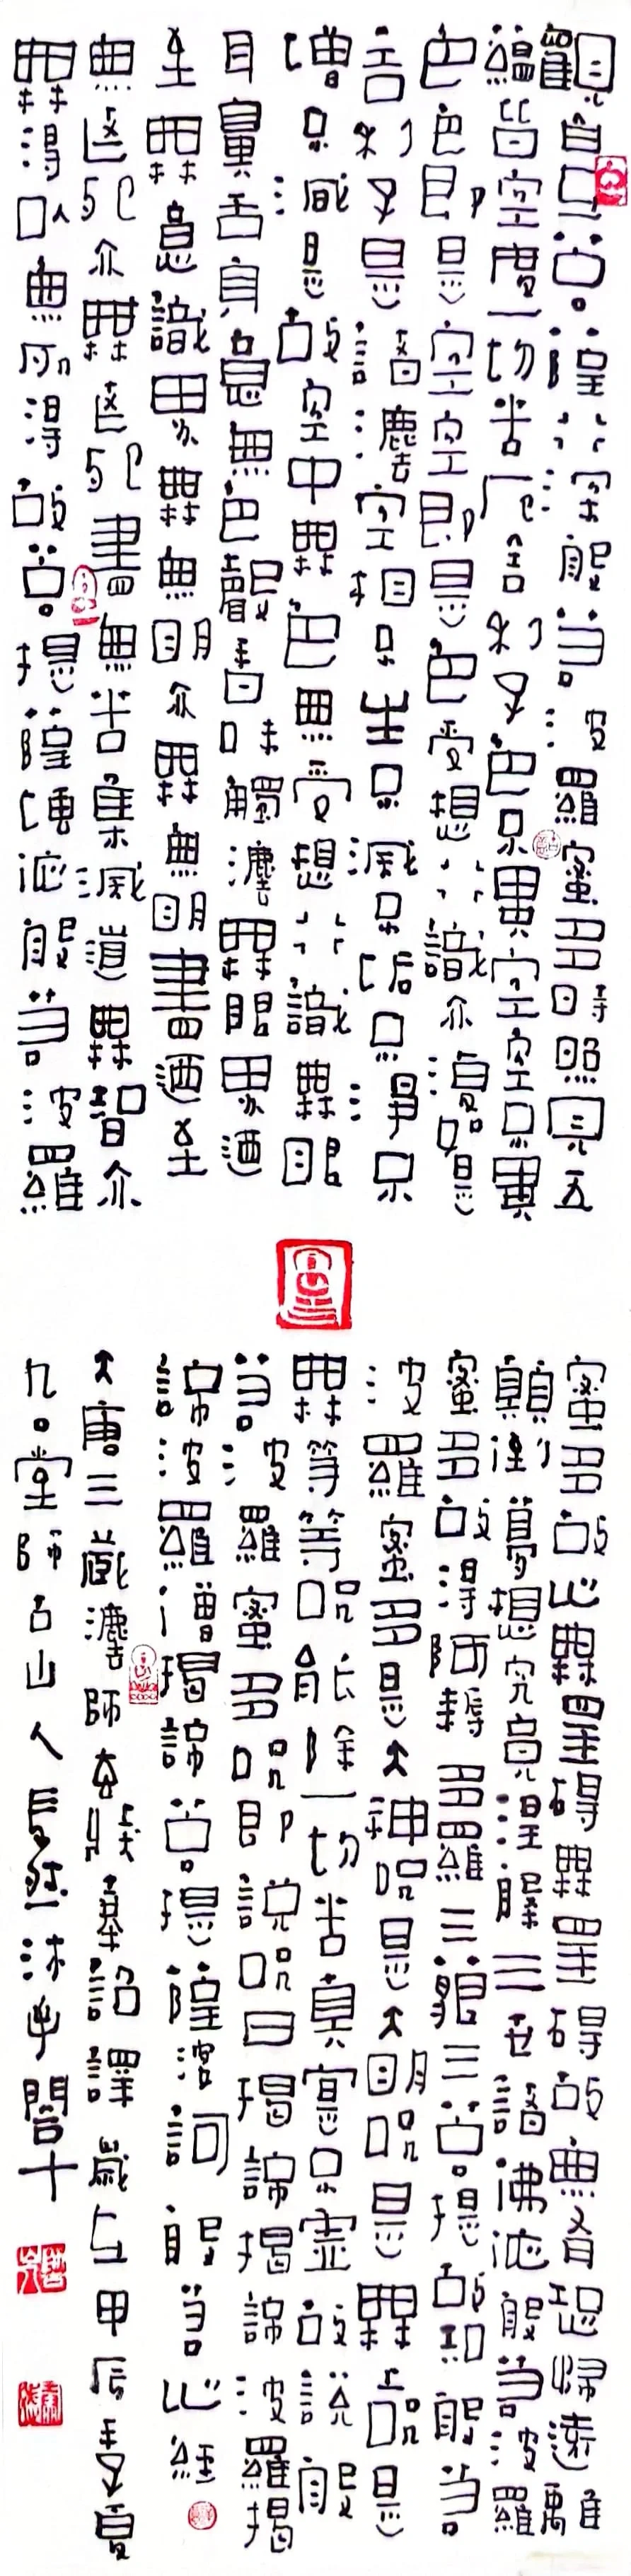 觀自在菩薩行深般若波羅蜜多時照見五
蘊皆空度一切苦厄舍利子色不異空空不異
色色即是空空即是色受想行識亦復如是
舍利子是諸灋空相不生不滅不垢不淨不
增不減是故空中無色無受想行識無眼
耳鼻舌身意無色聲香味觸灋無眼界迺
至無意識界無無明亦無無明盡迺至
無老死亦無老死盡無苦集滅道無智亦
無得以無所得故菩提薩埵依般若波羅
蜜多故心無罣礙無罣礙故無有恐怖遠離
顛倒夢想究竟涅槃三世諸佛依般若波羅
蜜多故得阿耨多羅三藐三菩提故知般若
波羅蜜多是大神咒是大明咒是無上咒是
無等等咒能除一切苦真實不虛故說般
若波羅蜜多咒即說咒曰揭諦揭諦波羅揭
諦波羅僧揭諦菩提薩婆訶般若心經
大唐三藏灋師玄奘奉詔譯歲在甲辰季夏
九〇堂師古山人長然沐手